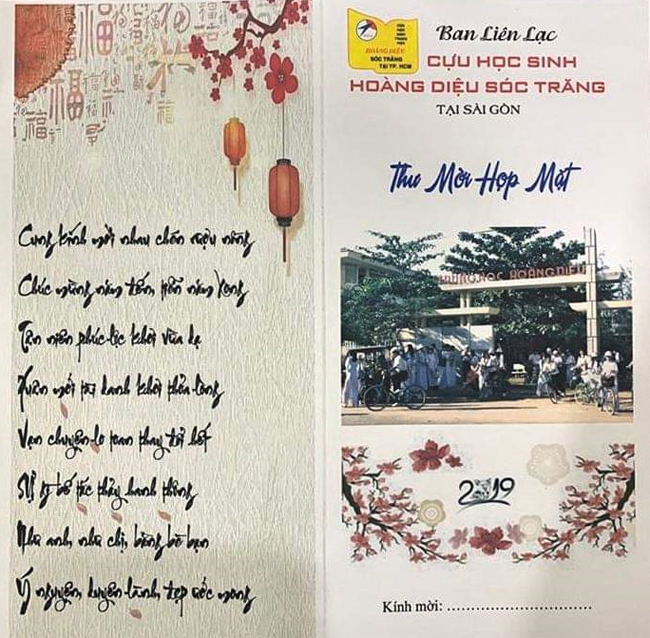 Cung kính mời nhau chén rượu nồng
Chúc mừng năm đến, tiễn năm xong
Tân niên phúc-lộc khơi vừa dạ
Xuân mới tài danh khởi thỏa-lòng
Vạn chuyện-lo toan thay đổi hết
Sự gì bế tắc thảy hanh thông
Như anh, như chị, bằng bè bạn
Ý nguyện, duyên-lành, đẹp ước mong
HOÀNG DIỆU
SÓC TRĂNG
TẠI TP. HCM
Ban Liên Lạc
CỰU HỌC SINH
HOÀNG DIỆU SÓC TRĂNG
TẠI SÀI GÒN
Thư Mời Họp Mặt
TRUNG HỌC HOÀNG DIỆU
2019
Kính mời: ................................